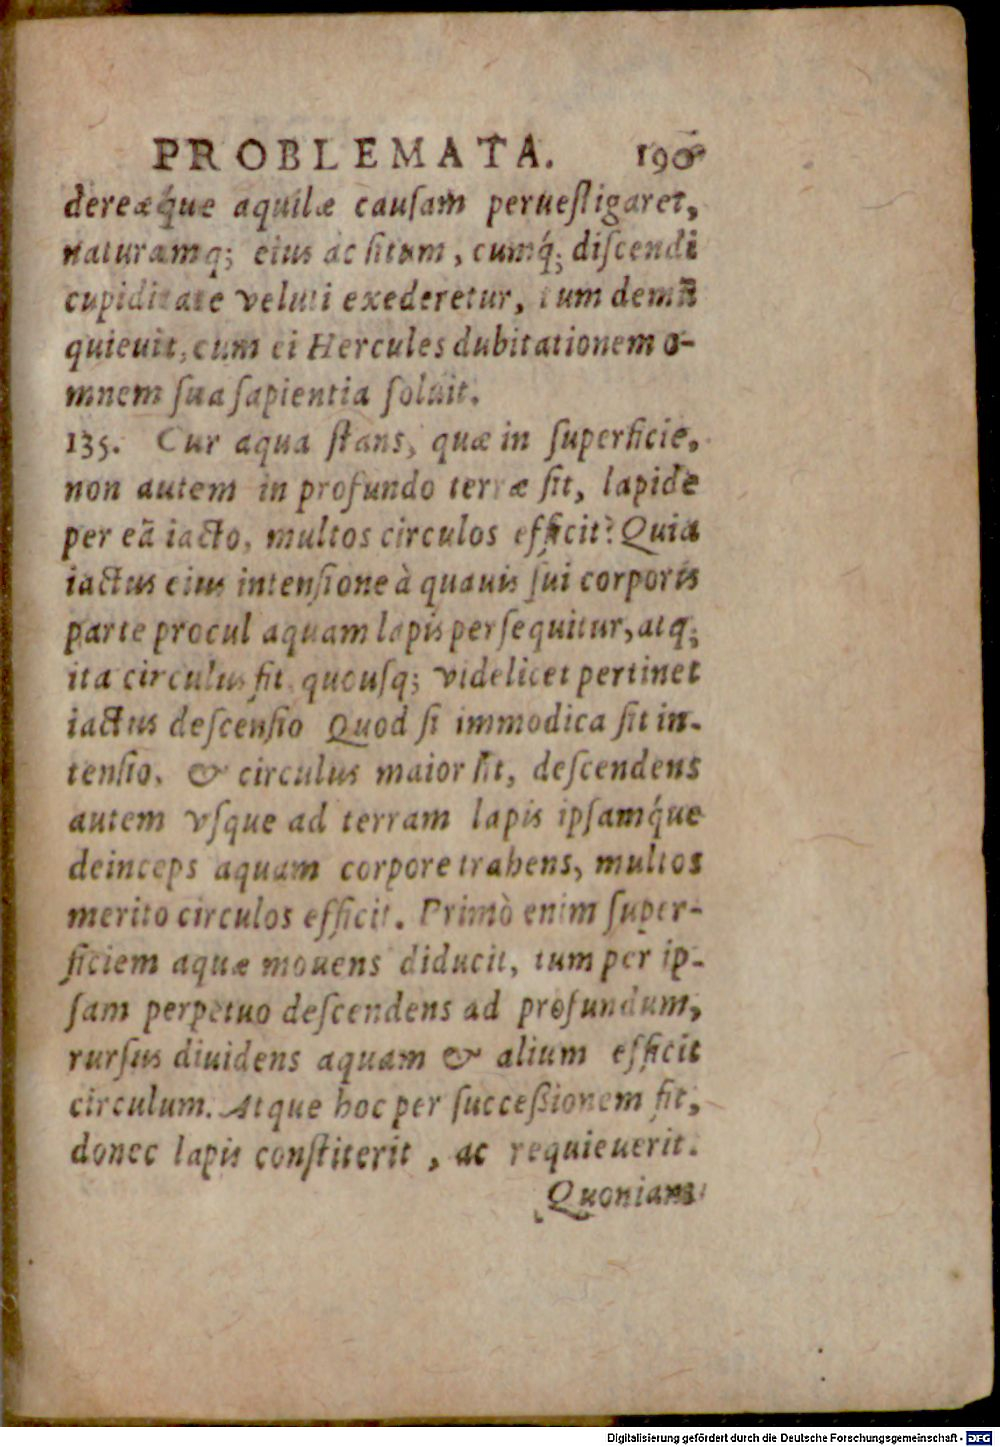 PROBLEMATA. 190
dereæq́ue aquilæ cauſam perueſtigaret,
naturamq; eius ac ſitum, cumq́; diſcendi
cupiditate veluti exederetur, tum demũ
quieuit, cum ei Hercules dubitationem o-
mnem ſua ſapientia ſoluit.
135. Cur aqua ſtans, quæ in ſuperficie,
non autem in profundo terræ ſit, lapide
per eã iacto, multos circulos efficit? Quia
iactus eius intenſione à quauis ſui corporis
parte procul aquam lapis perſequitur, atq;
ita circulus fit quouſq; videlicet pertinet
iactus deſcenſio Quod ſi immodica ſit in-
tenſio, & circulus maior fit, deſcendens
autem vſque ad terram lapis ipſamq́ue
deinceps aquam corpore trahens, multos
merito circulos efficit. Primò enim ſuper-
ficiem aquæ mouens diducit, tum per ip-
ſam perpetuo deſcendens ad profundum,
rurſus diuidens aquam & alium efficit
circulum. Atque hoc per ſucceßionem fit,
donec lapis conſtiterit, ac requieuerit.
Quoniam
Digitalisierung gefördert durch die Deutsche Forschungsgemeinschaft - DFG